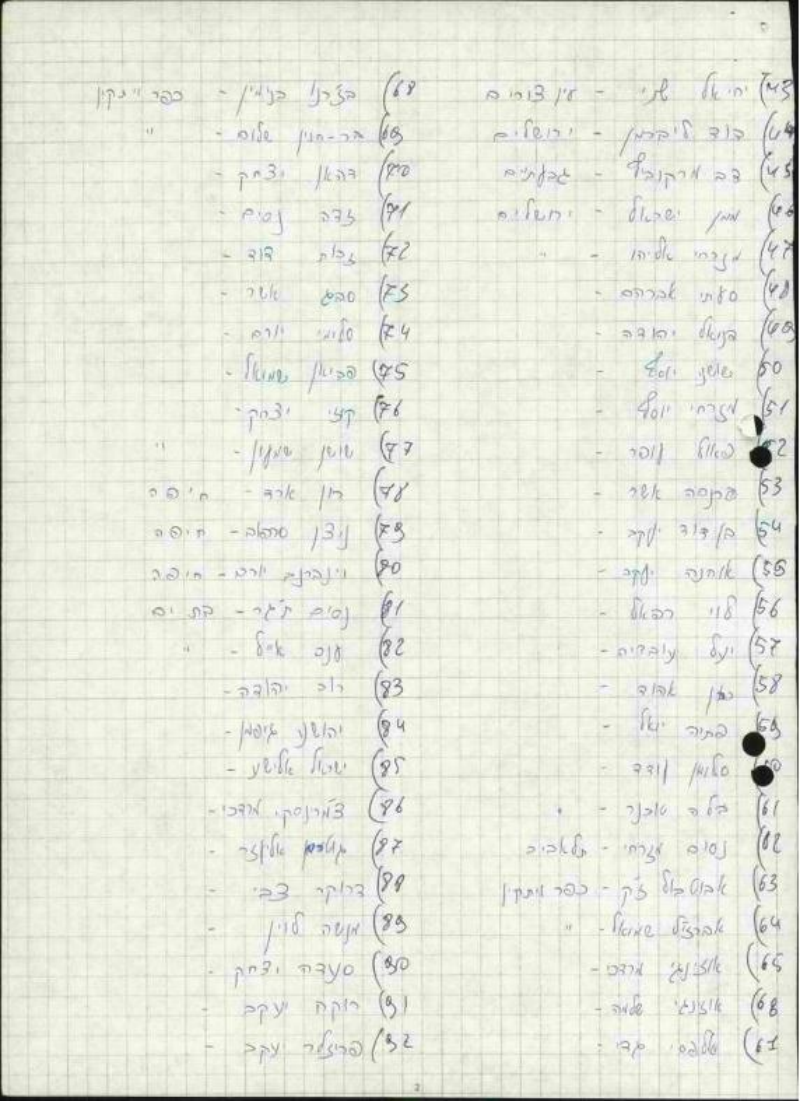 43) יחיאל שני - עין צורים
44) דוד ליברמן - ירושלים
45) דב מרקוביץ - גבעתיים
46) ממן ישראל - ירושלים
47) מזרחי אליהו - "
48) סעתי אברהם -
49) פנואל יהודה -
50) ששון יוסף -
51) מזרחי יוסף -
52) עופר -
53) פרנסה אשר -
54) בן דוד יעקב -
55) אוחנה יעקב -
56) לוי רפאל -
57) יעל עובדיה -
58) כהן אהוד -
59) פתיה יואל -
סלומון עודד -
61) בלה טוכנר -
62) נסים מזרחי - תל אביב
63) אבוטבול ז'ק - כפר ויתקין
64) אברז'ל שמואל - "
65) מרדכי -
66) שלמה -
67) אלפסי גדי -
68) בנימין - כפר ויתקין
69) בר-חנין שלום - "
70) דהאן יצחק -
71) זדה נסים -
72) דוד -
73) אשר -
74) סלימי יורם -
75) פביאן שמואל -
76) קוזי יצחק -
77) שושן שמעון - "
78) רון ארד - חיפה
79) ניצן - חיפה
80) וינברגב יורם - חיפה
81) נסים תג'ר - בת ים
82) ענב אייל - "
83) רוב יהודה -
84) יהושע גיפמן -
85) ישראל אלישע -
86) צ'מרינסקי מרדכי -
87) אליעזר -
88) דרוקר צבי -
89) מנשה לוין -
90) סעדה יצחק -
91) רוקח יעקב -
92) פרייזלר יעקב -